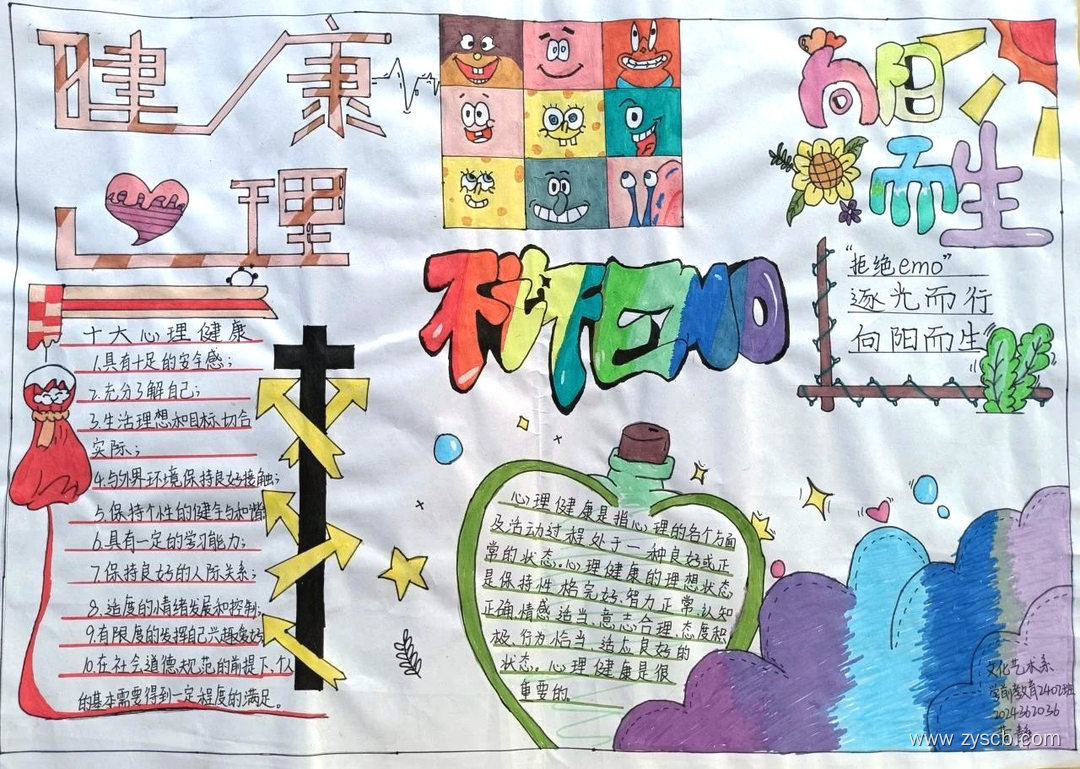 健康
心理
十大心理健康
1.具有十足的安全感;
2.充分了解自己;
3.生活理想和目标切合
实际;
4.与外界环境保持良好接触;
5.保持个性的健全与和谐
6.具有一定的学习能力;
7.保持良好的人际关系;
8.适度的情绪发展和控制;
9.有限度的发挥自己兴趣爱好
10.在社会道德规范的前提下,个人
的基本需要得到一定程度的满足。
不许EMO
心理健康是指心理的各个方面
及活动过程处于一种良好或正
常的状态。心理健康的理想状态
是保持性格完好、智力正常、认知
正确、情感适当、意志合理、态度积
极、行为恰当、适应良好的
状态。心理健康是很
重要的。
向阳
而生
"拒绝emo"
逐光而行
向阳而生
文化艺术系
学前教育2402班
2024362036
www.zyscb.com